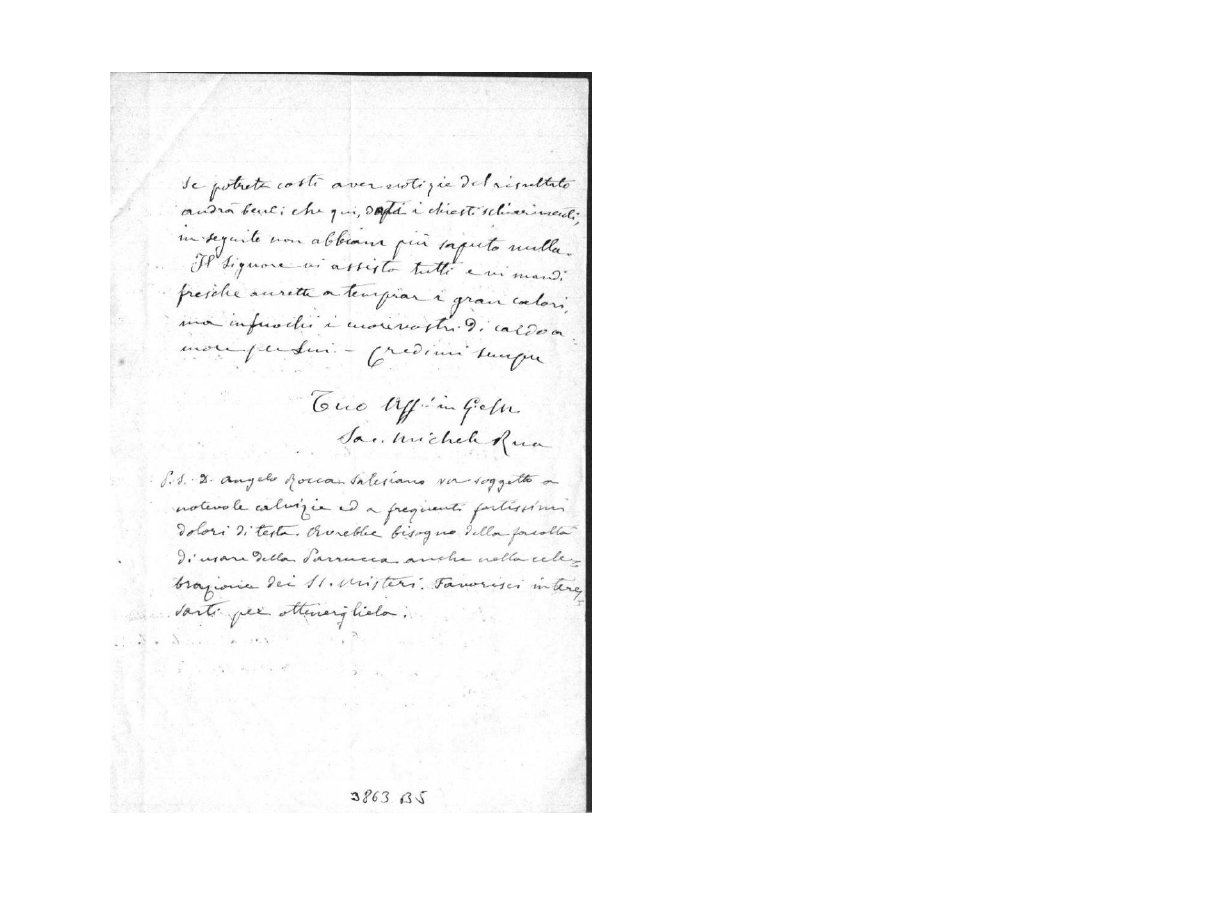 Se potrete costì aver notizie del risultato
andrà bene; chè qui, dati i chiesti schiarimenti,
in seguito non abbiam più saputo nulla.
Il Signore vi assista tutti e vi mandi
fresche aurette a temprar i gran calori,
ma infuochi i cuori vostri di caldo a
more per Lui. – Credimi sempre
Tuo Aff.º in G. e M.
Sac. Michele Rua
P.S. D. Angelo Rocca Salesiano va soggetto a
notevole calvizie ed a frequenti fortissimi
dolori di testa. Avrebbe bisogno della facoltà
di usare della Parrucca anche nella cele=
brazione dei SS. Misteri. Favorisci interes=
sarti per ottenergliela.
3863 B5